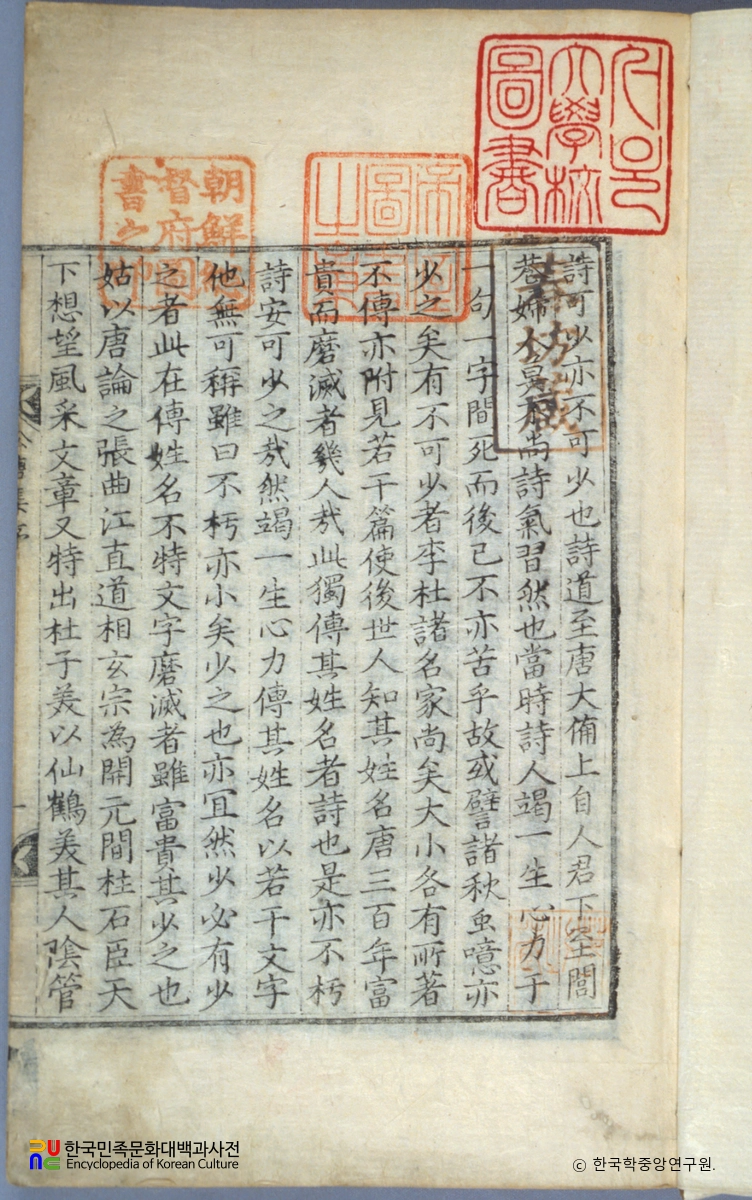 詩可少亦不可少也詩道至唐大備上自人君下至閭
巷婦人莫不尚詩氣習然也當時詩人竭一生心力于
一句一字間死而後已不亦苦乎故或譬諸秋虫噫亦
少之矣有不可少者李杜諸名家尚矣大小各有所著
不傳亦附見若干篇使後世人知其姓名唐三百年富
貴而磨滅者幾人㢤此獨傳其姓名者詩也是亦不朽
詩安可少之㢤然竭一生心力傳其姓名以若干文字
他無可稱雖曰不朽亦小矣少之也亦冝然少必有少
之者此在傳姓名不特文字磨滅者雖富貴其少之也
姑以唐論之張曲江直道相玄宗為開元間柱石臣天
下想望風采文章又特出杜子美以仙鶴美其人陰管
大學校
圖書
帝國
圖書
之章
朝鮮總
督府圖
書之印
한국민족문화대백과사전
Encyclopedia of Korean Culture
ⓒ 한국학중앙연구원.